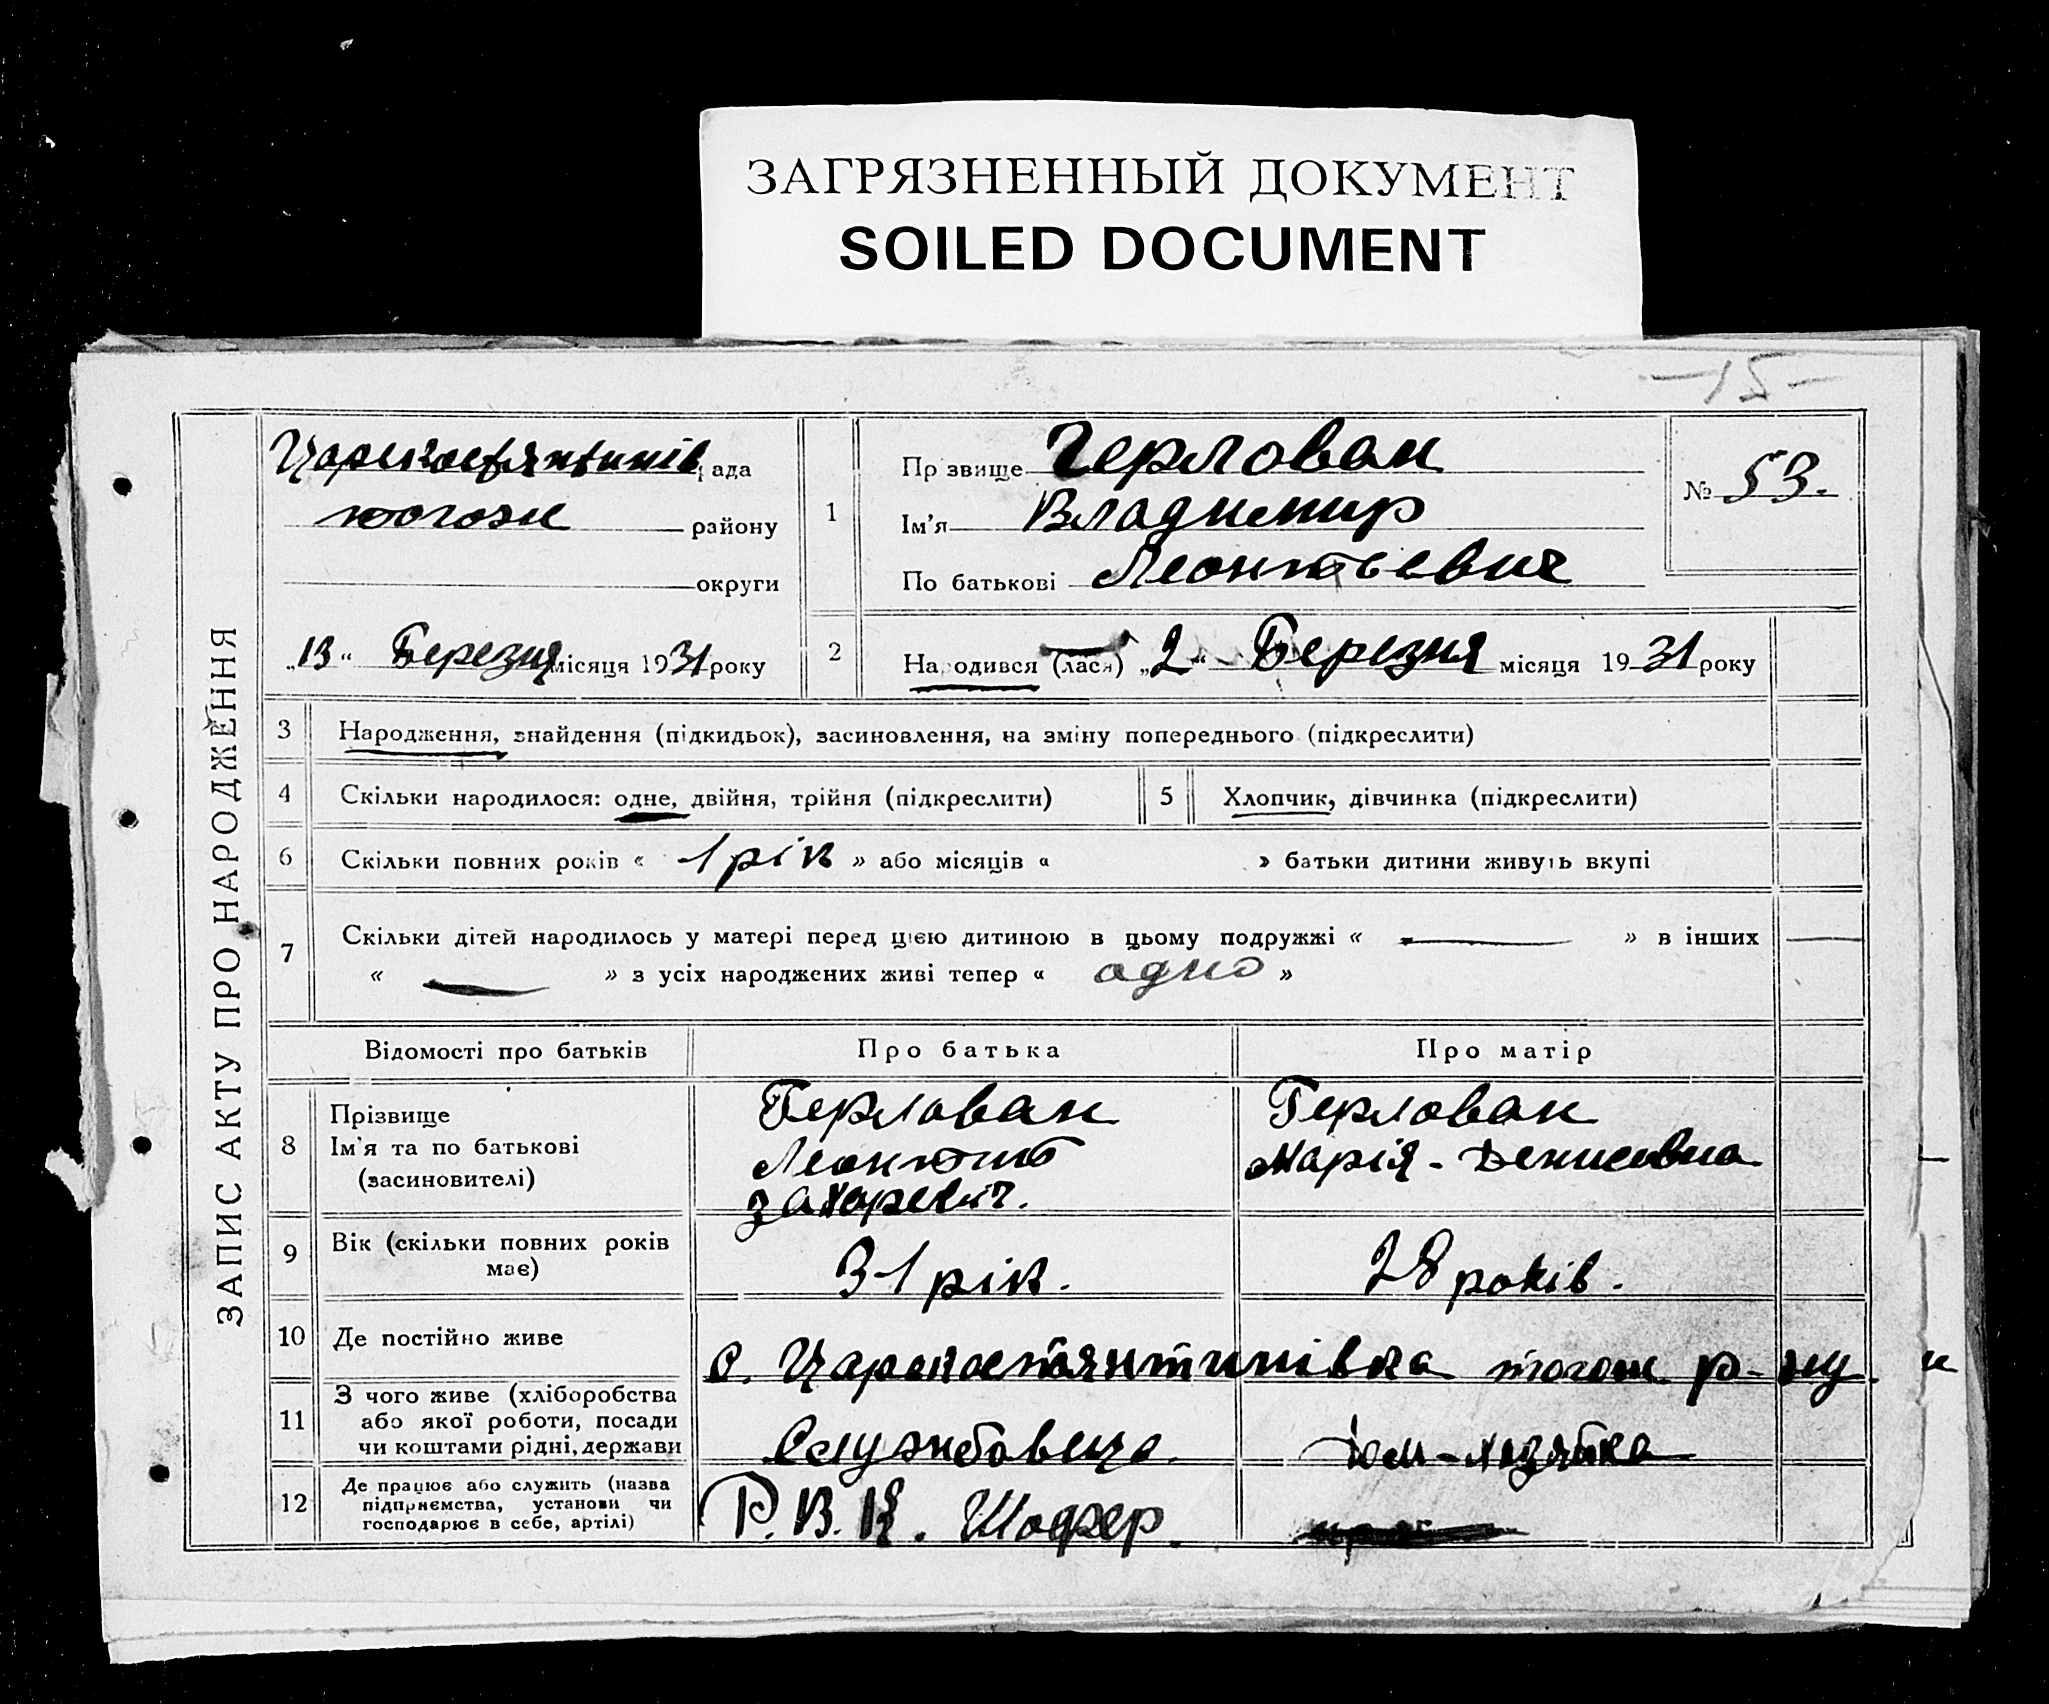 ЗАГРЯЗНЕННЫЙ ДОКУМЕНТ
SOILED DOCUMENT
-15-
ЗАПИС АКТУ ПРО НАРОДЖЕННЯ
Царекостянтинів рада
тогож району
округи
„13“ Березня місяця 1931 року
1
Прізвище Герлован
Ім'я Владимир
По батькові Леонтьевич
№ 53.
2
Народився (лася) „2“ Березня місяця 1931 року
3 Народження, знайдення (підкидьок), засиновлення, на зміну попереднього (підкреслити)
4 Скільки народилося: одне, двійня, трійня (підкреслити)
5 Хлопчик, дівчинка (підкреслити)
6 Скільки повних років « 1 рік » або місяців « » батьки дитини живуть вкупі
7 Скільки дітей народилось у матері перед цією дитиною в цьому подружжі « — » в інших —
« — » з усіх народжених живі тепер « одно »
Відомості про батьків Про батька Про матір
8
Прізвище
Ім'я та по батькові
(засиновителі)
Герлован
Леонтий
Захаревич.
Герлован
Марія - Денисовна
9
Вік (скільки повних років
має)
31 рік.
28 років.
10 Де постійно живе
с. Царекостянтинівка тогож р-ну
11
З чого живе (хліборобства
або якої роботи, посади
чи коштами рідні, держави
Службовець
Дом-хазяйка
12
Де працює або служить (назва
підприємства, установи чи
господарює в себе, артілі)
Р.В.К. Шофер.